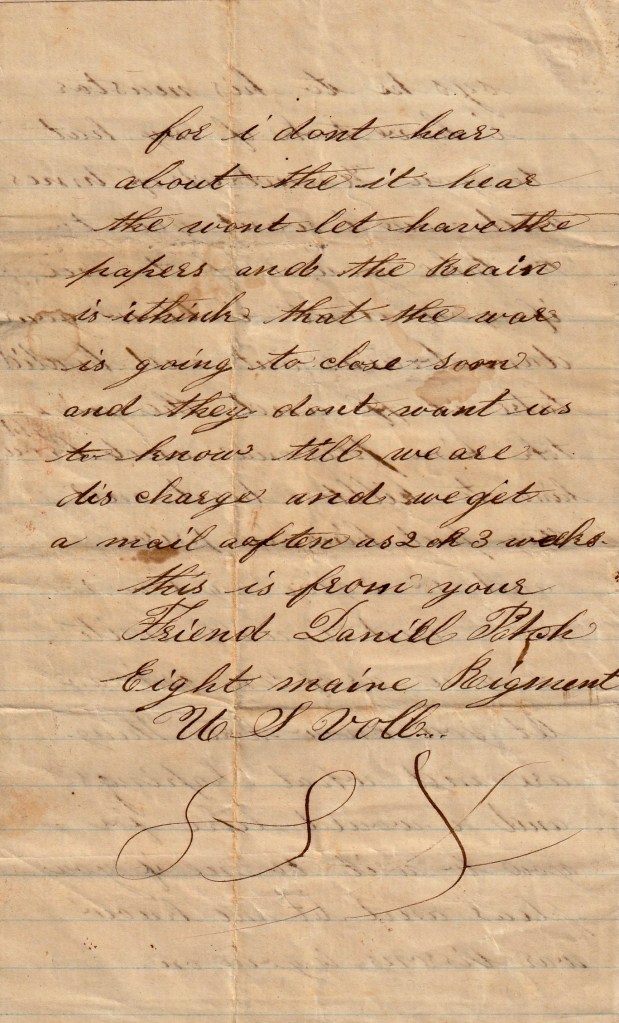 for i dont hear
about the it hear
the wont let have the
papers and the Reain
is ithink that the war
is going to close soon
and they dont want us
to know till we are
dis charge and we get
a mail aoften as 2 oR 3 weeks
this is from your
Friend Daniell
Eight maine Rigment
U S Voll...